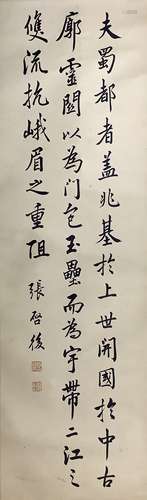 夫蜀都者蓋兆基於上世開國於中古
廓靈關以為门包玉壘而為宇帶二江之
雙流抗峨眉之重阻
張啓後